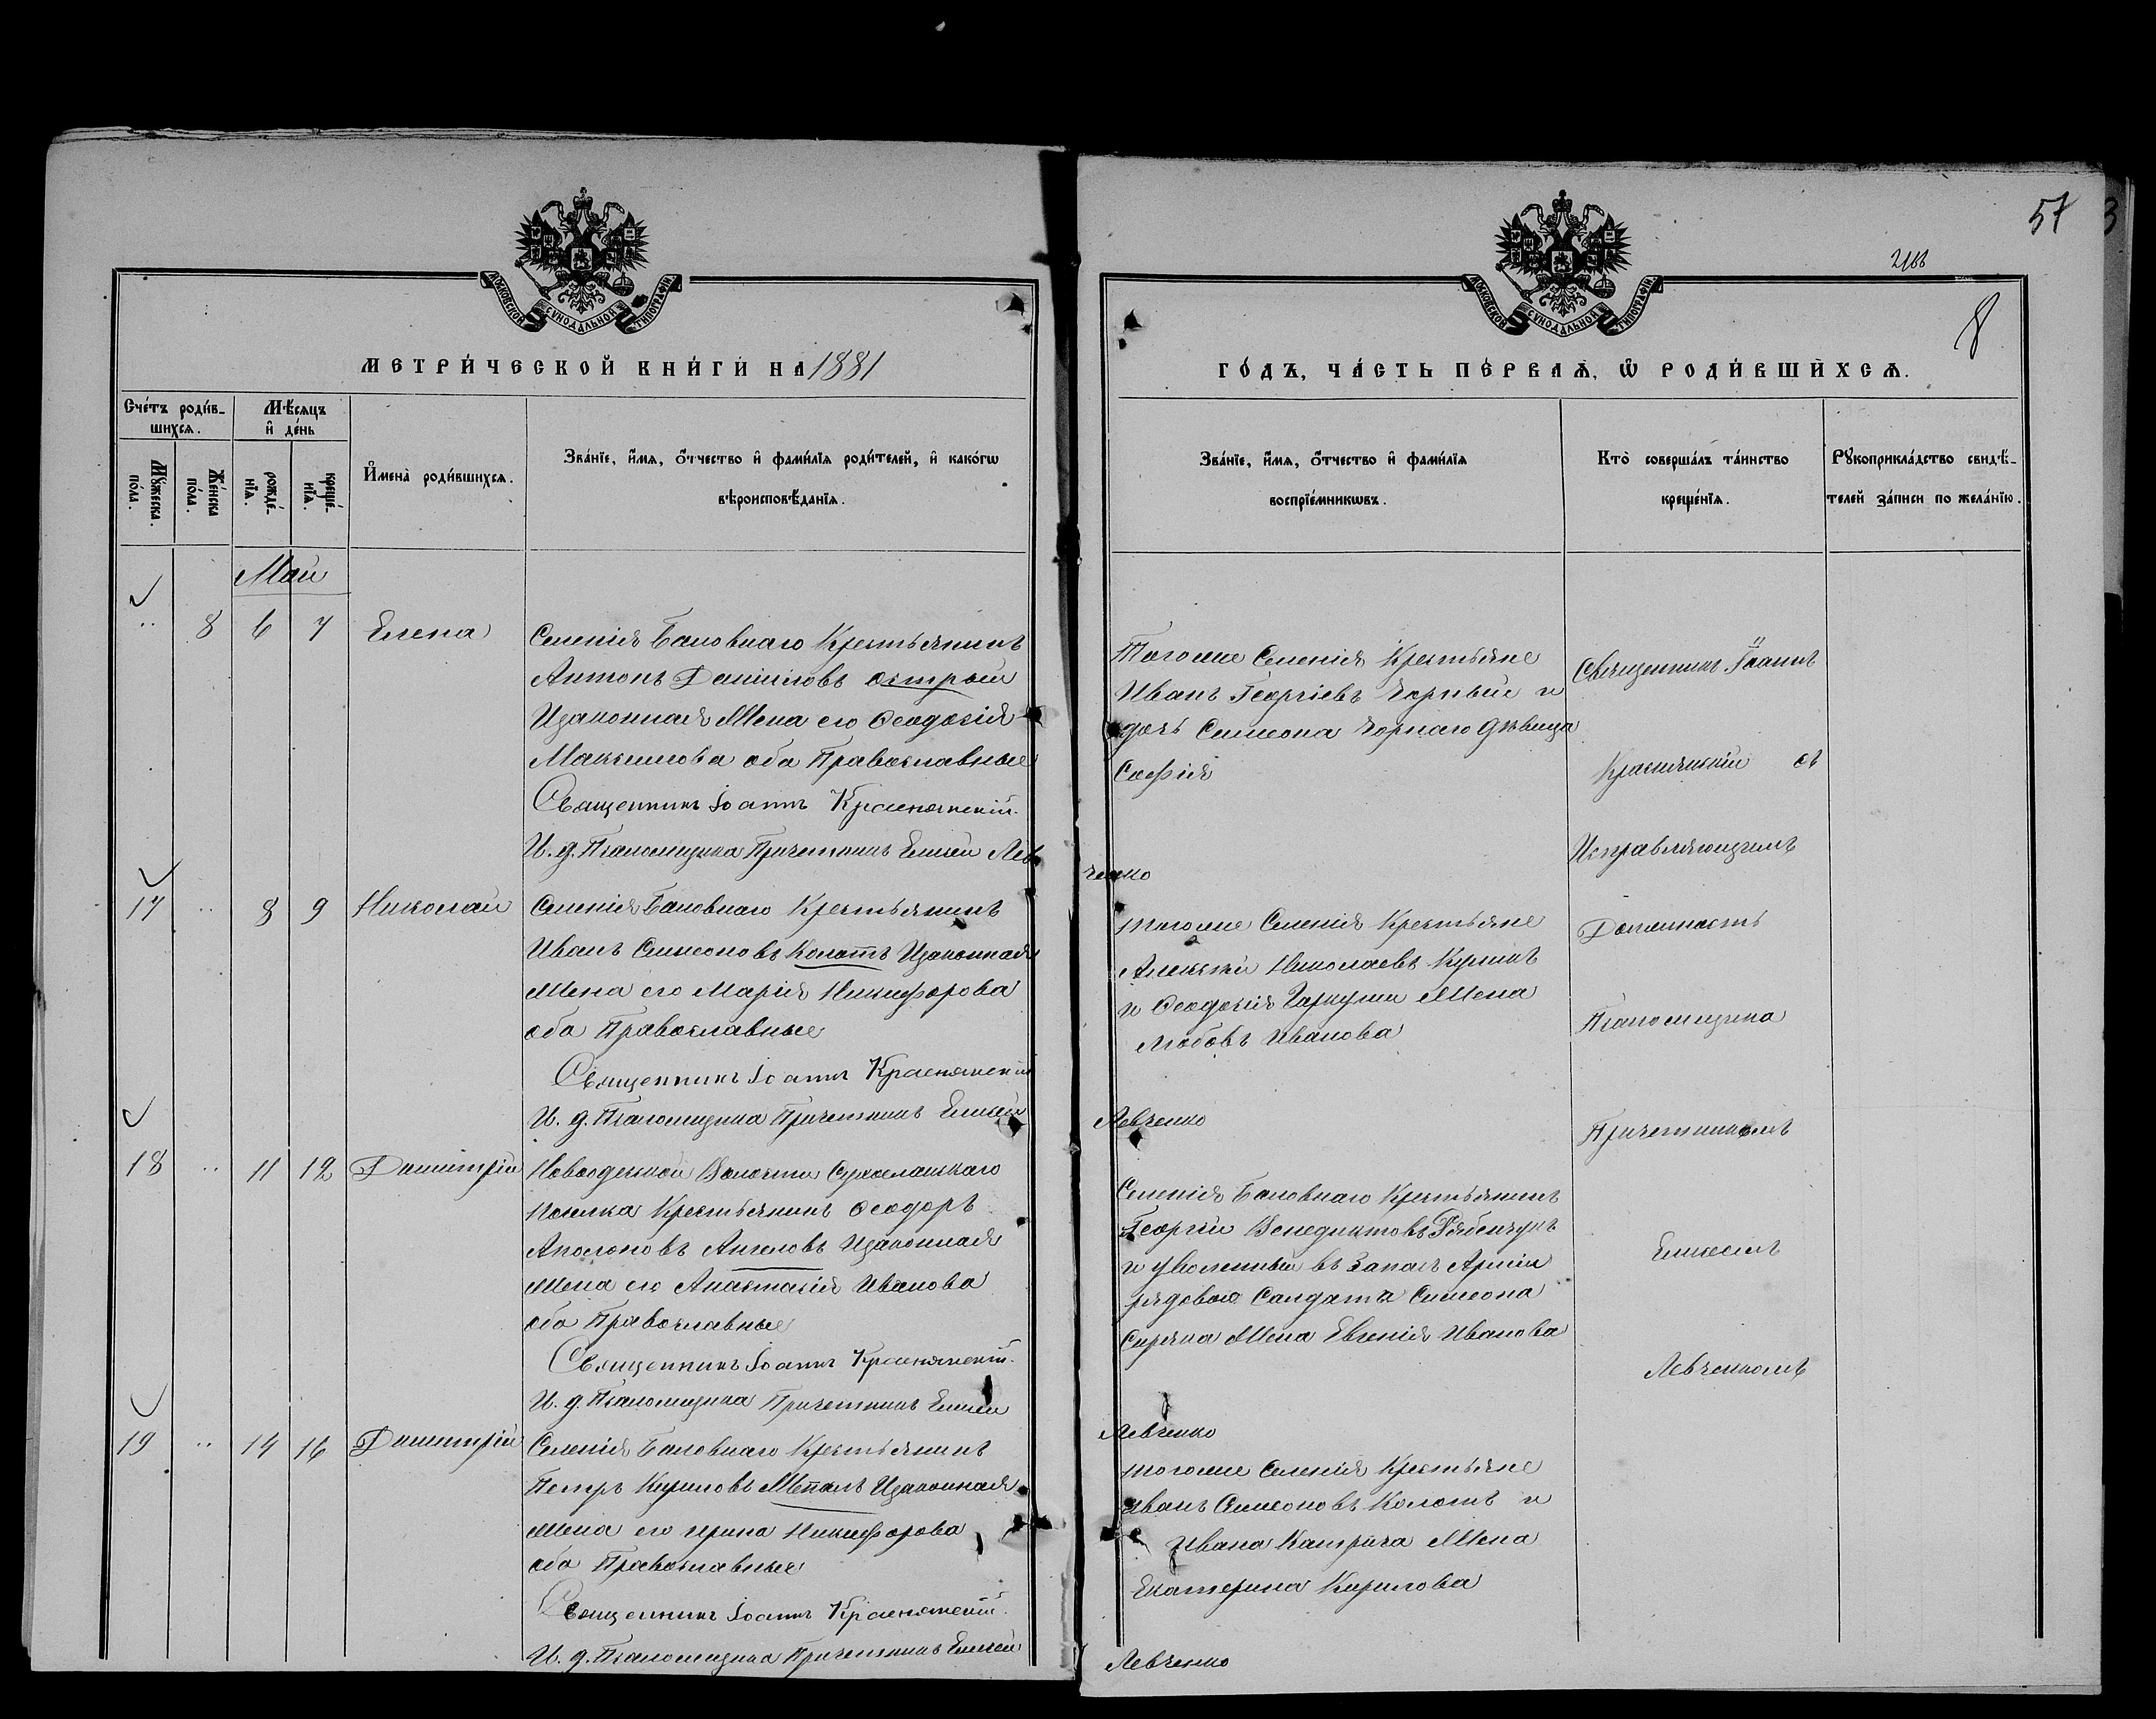 57
2166
8
МОСКОВСКОЙ СѴНОДАЛЬНОЙ ТИПОГРАФІИ
МОСКОВСКОЙ СѴНОДАЛЬНОЙ ТИПОГРАФІИ
МЕТРИ́ЧЕСКОЙ КНИ́ГИ НА 1881
ГО́ДЪ, ЧА́СТЬ ПЕ́РВАѦ, Ѡ РОДИ́ВШИХСѦ.
Сче́тъ роди́в-
шихсѧ.
Мꙋ́жеска по́ла.
Же́нска по́ла.
Мѣ́сѧцъ
и҆ де́нь
рожде́-
нїѧ.
креще́-
нїѧ.
И҆мена̀ роди́вшихсѧ.
Зва́нїе, и҆́мѧ, ѻ҆́тчество и҆ фами́лїѧ роди́телей, и҆ како́гѡ
вѣроисповѣ́данїѧ.
Зва́нїе, и҆́мѧ, ѻ҆́тчество и҆ фами́лїѧ
воспрїе́мникѡвъ.
Кто̀ соверша́лъ та́инство
креще́нїѧ.
Рꙋкоприкла́дство свидѣ́-
телей за́писи по жела́нїю.
Май
8 6 7 Елена
Селенія Баловнаго Крестьянинъ
Антонъ Даніиловъ Острый
Изаконная Жена его Ѳеодосія
Максимова оба Православные
Священникъ Іоаннъ Краснянскій.
И. д. Псаломщика Причетникъ Елисей Лев
ченко
Тогоже Селенія Крестьяне
Иванъ Георгіевъ Чорный и
дочь Симеона Чорнаго дѣвица
Софія
Священникъ Іоаннъ
Краснянскій съ
Исправляющимъ
Должность
Псаломщика
Причетникомъ
Елисеемъ
Левченкомъ
17 8 9 Николай
Селенія Баловнаго Крестьянинъ
Иванъ Симеоновъ Колотъ Изаконная
Жена его Марія Никифорова
оба Православные
Священникъ Іоаннъ Краснянскій
И. д. Псаломщика Причетникъ Елисей
Левченко
тогоже Селенія Крестьяне
Алексѣй Николаевъ
и Ѳеодосія Гаркуши Жена
Любовь Иванова
18 11 12 Димитрій
Новоодесской Волости
поселка Крестьянинъ Ѳеодоръ
Аполоновъ Ангеловъ Изаконная
Жена его Анастасія Иванова
оба Православные
Священникъ Іоаннъ Краснянскій.
И. д. Псаломщика Причетникъ Елисей
Левченко
Селенія Баловнаго Крестьянинъ
Георгій Венедиктовъ Рябенчукъ
и уволенный въ Запасъ Арміи
рядовое Салдата Симеона
Жена Евгенія Иванова
19 14 16 Димитрій
Селенія Баловнаго Крестьянинъ
Петръ Кириловъ Изаконная
Жена его Ирина Никифорова
оба Православные
Священникъ Іоаннъ Краснянскій.
И. д. Псаломщика Причетникъ Елисей
Левченко
тогоже Селенія Крестьяне
Иванъ Симеоновъ Колотъ и
Ивана Катрича Жена
Екатерина Кирилова